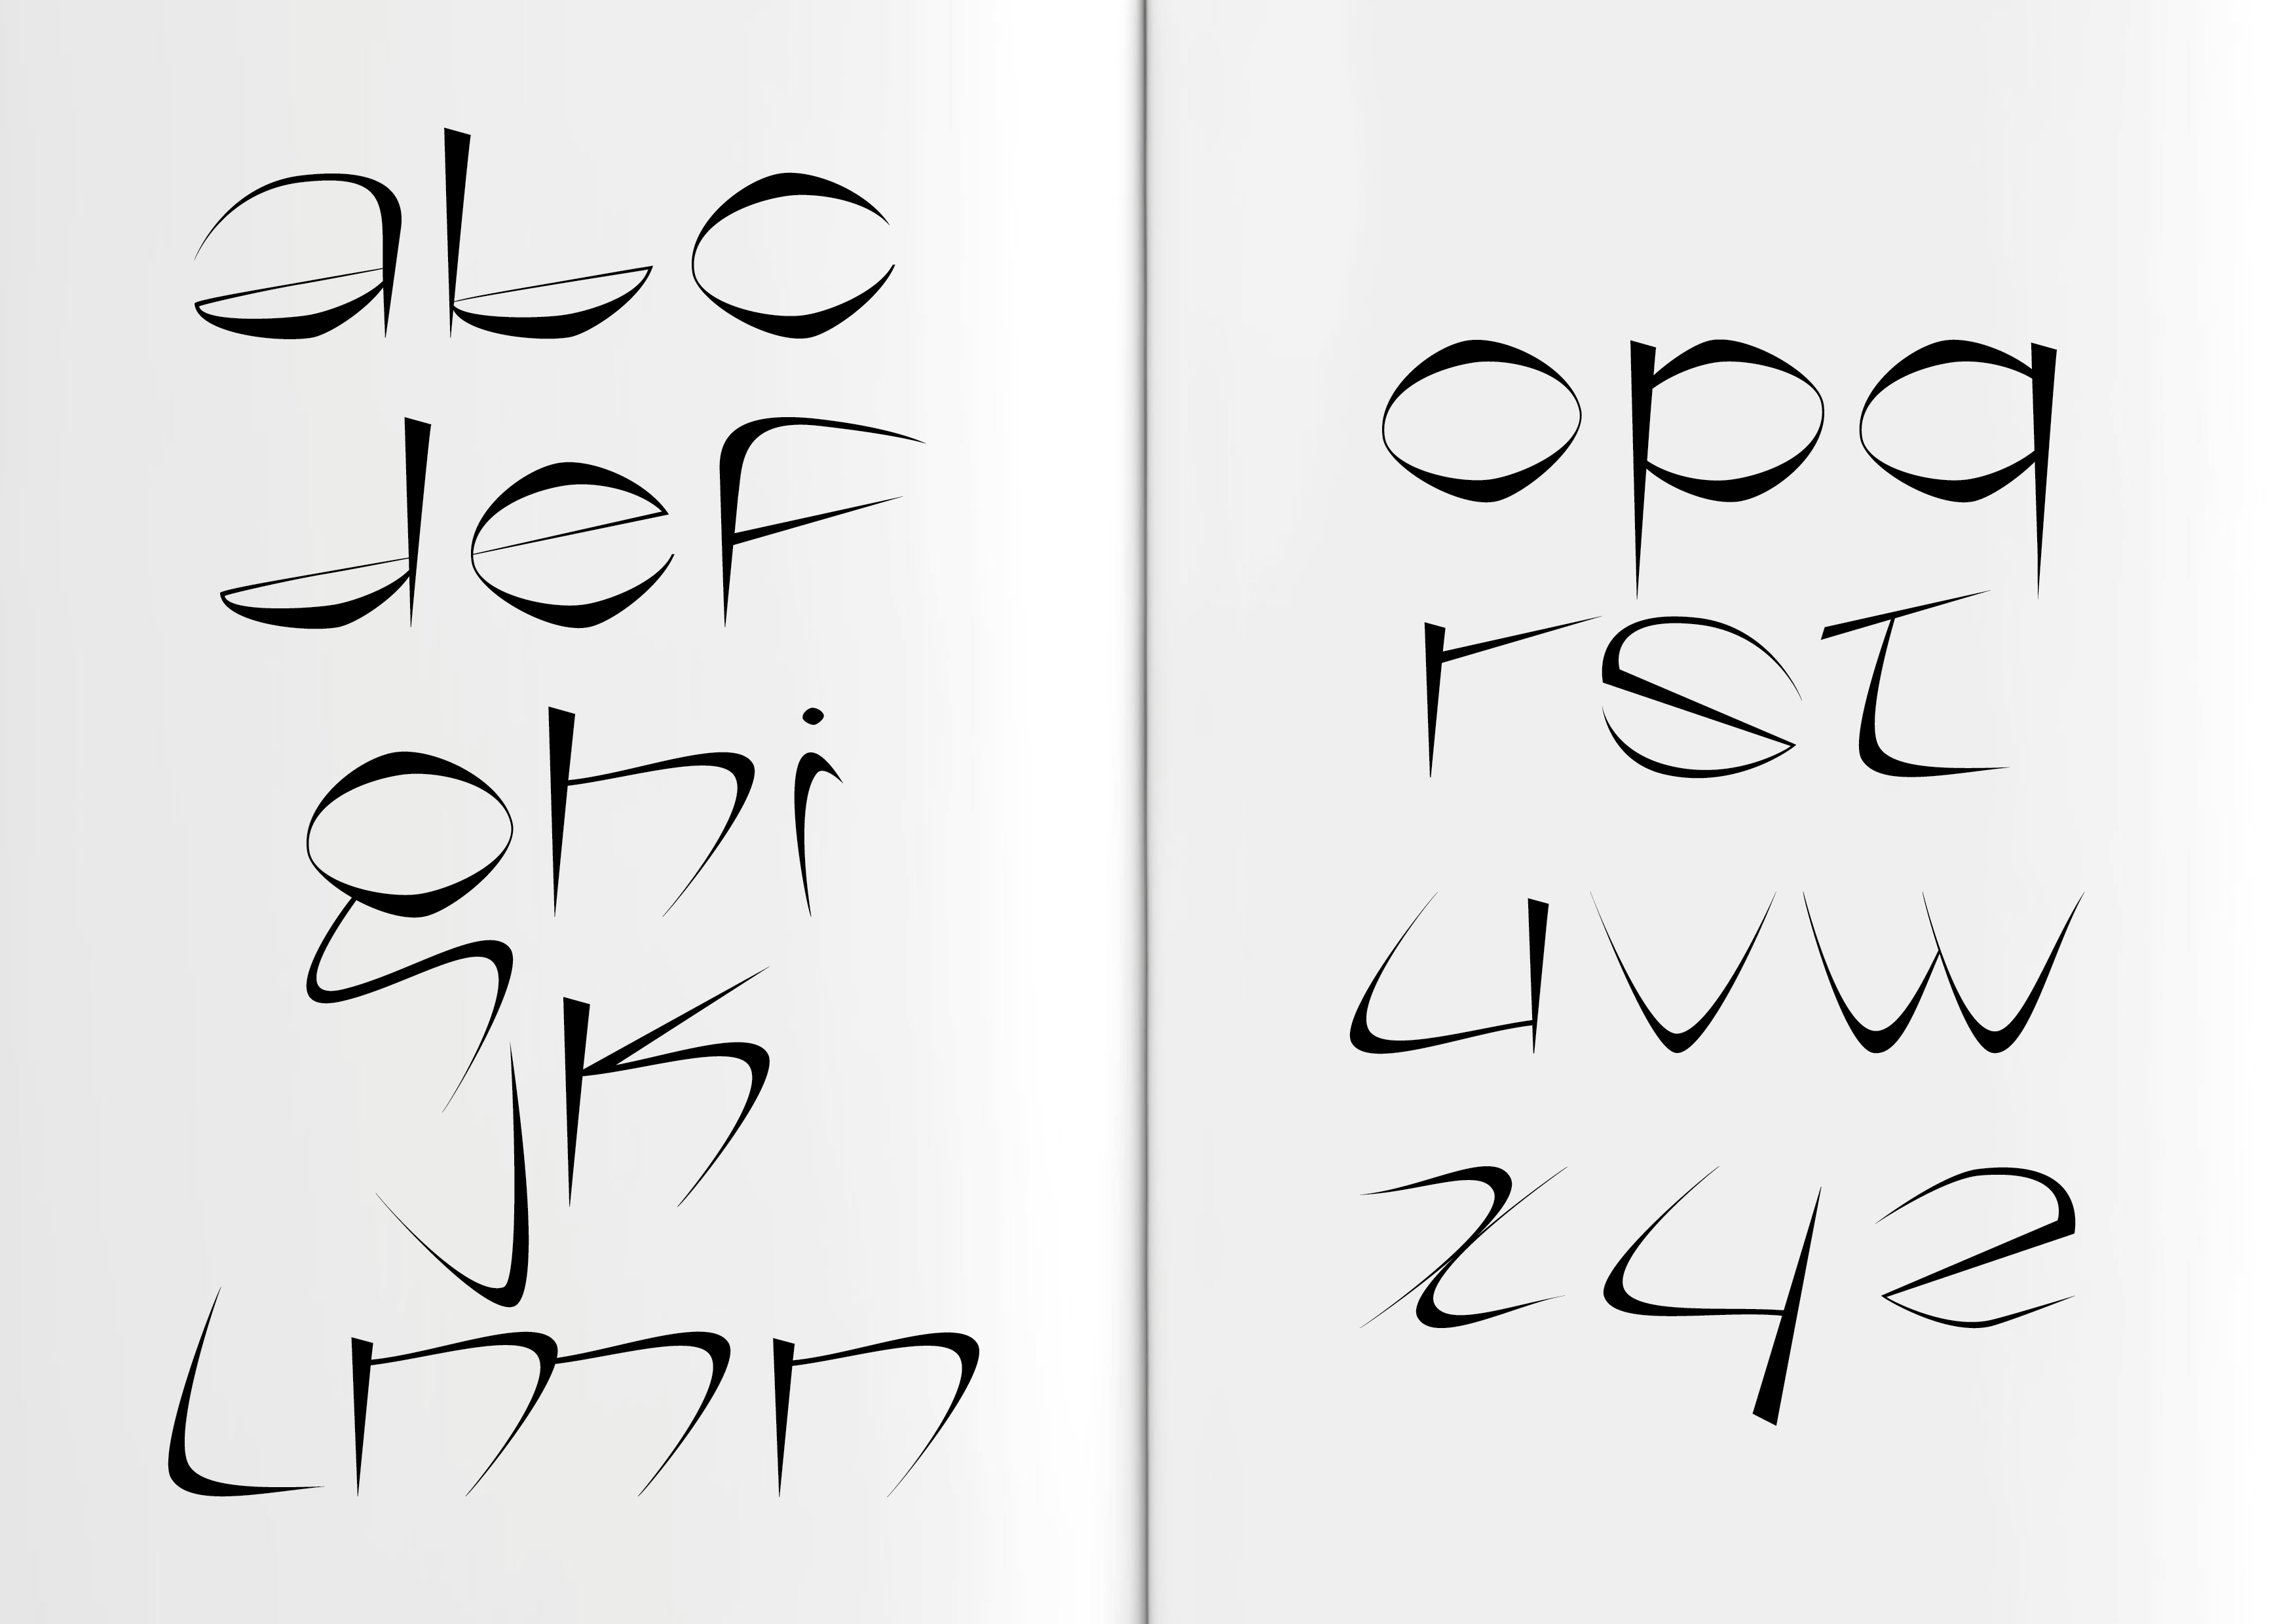 abc
def
ghi
jk
lmn
opq
rst
uvw
xyz